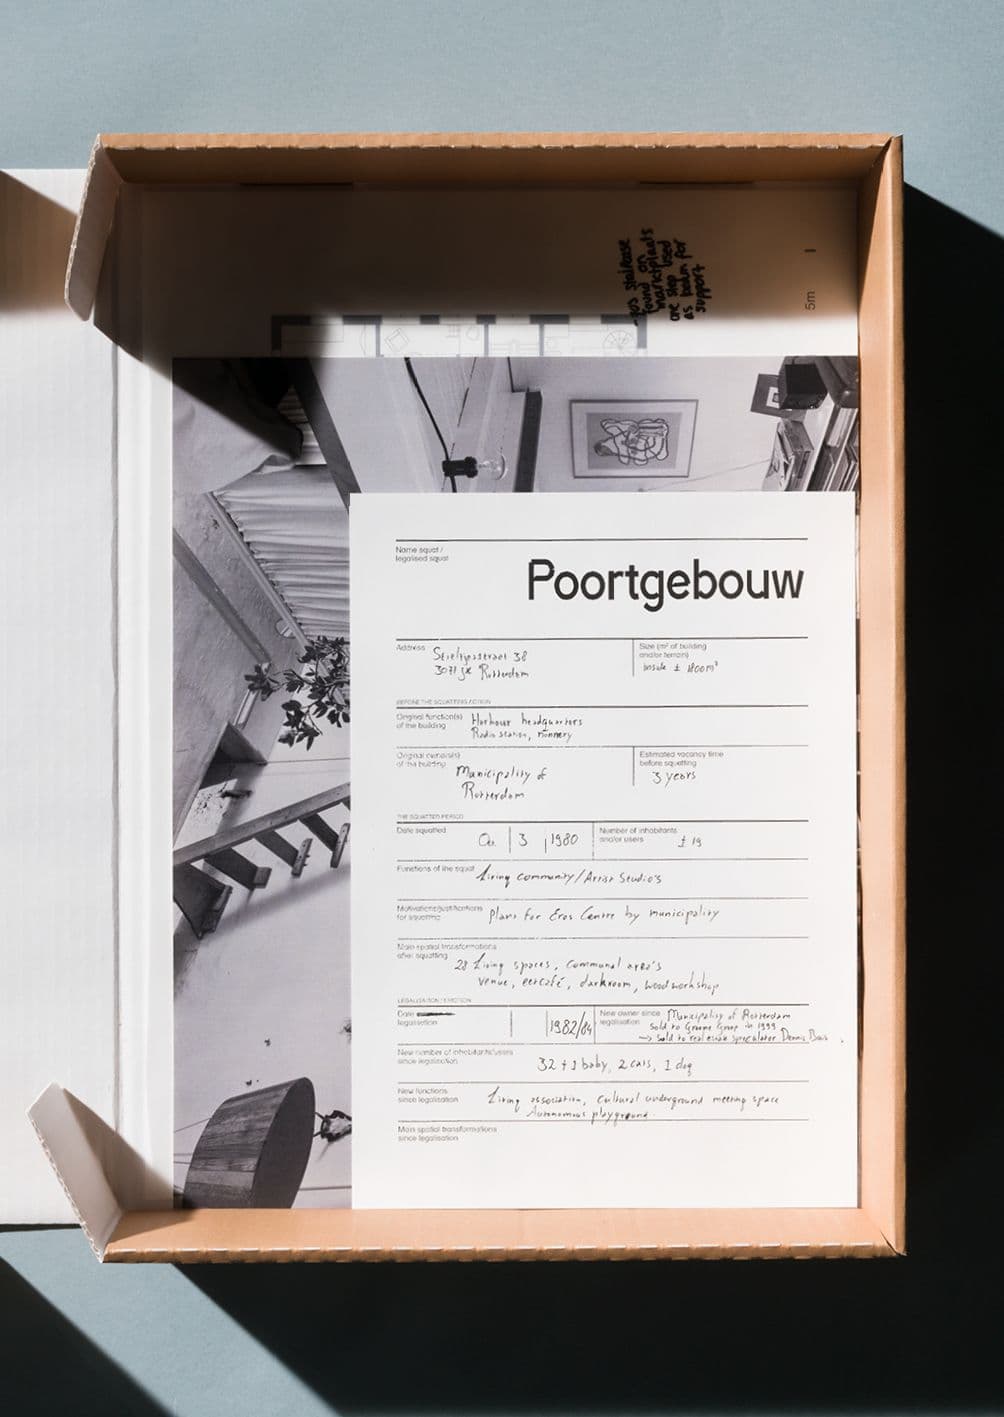 staircase
found on
marktplaats
one step used
as beam for
support
5m
Name squat /
legalised squat
Poortgebouw
Address
Stieltjesstraat 38
3071 jk Rotterdam
Size (m² of building
and/or terrain)
inside ± 1800m²
BEFORE THE SQUATTING ACTION
Original function(s)
of the building
Harbour headquarters
Radio station, nunnery
Original owner(s)
of the building
Municipality of
Rotterdam
Estimated vacancy time
before squatting
3 years
THE SQUATTED PERIOD
Date squatted
3 1980
Number of inhabitants
and/or users
± 19
Functions of the squat
Living community/Artist Studio's
Motivations/justifications
for squatting
Plans for Eros Centre by municipality
Main spatial transformations
after squatting
28 Living spaces, communal area's
venue, eetcafé, darkroom, woodworkshop
LEGALISATION / EVICTION
Date
legalisation
1982/84
New owner since
legalisation
Municipality of Rotterdam
Sold to Group in 1999
→ sold to real estate speculator Dennis
New number of inhabitants/users
since legalisation
32 + 1 baby, 2 cats, 1 dog
New functions
since legalisation
Living association, Cultural underground meeting space
Autonomous playground
Main spatial transformations
since legalisation